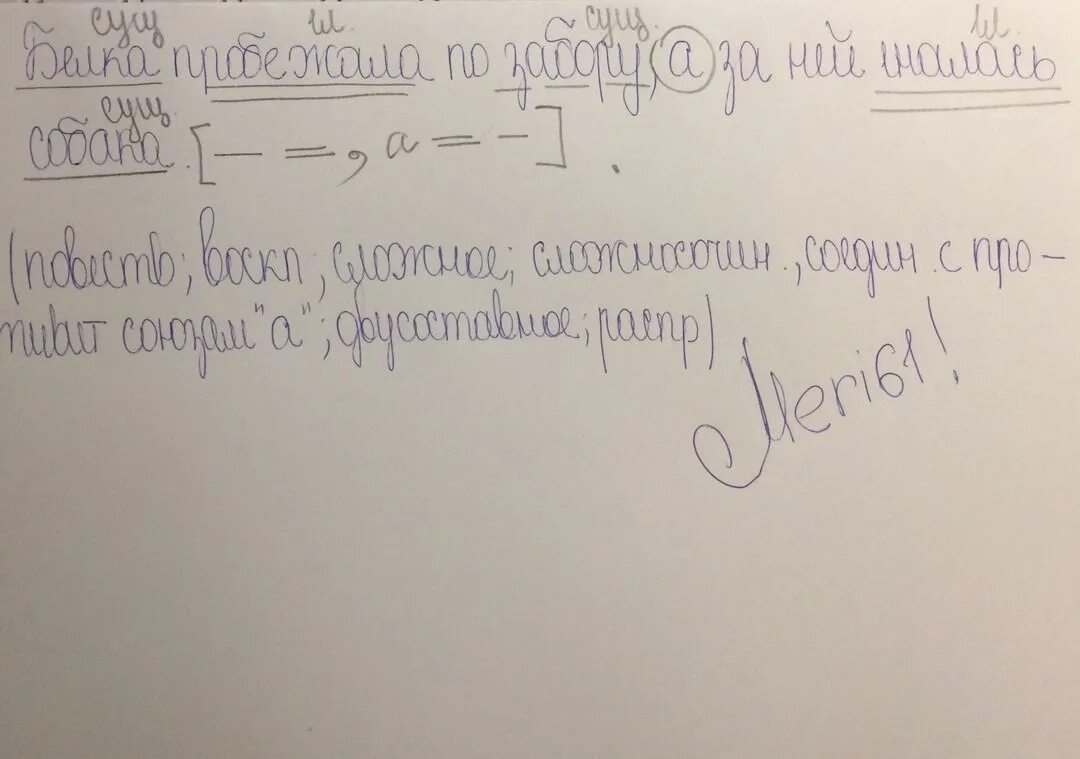 сущ гл. сущ. гл.
Белка пробежала по забору, а за ней гналась
сущ.
собака. [— =, а = —].
(повеств; воскл; сложное; сложносочин., соедин. с про-
тивит союзам "а"; двусоставное; распр)
Meri61!